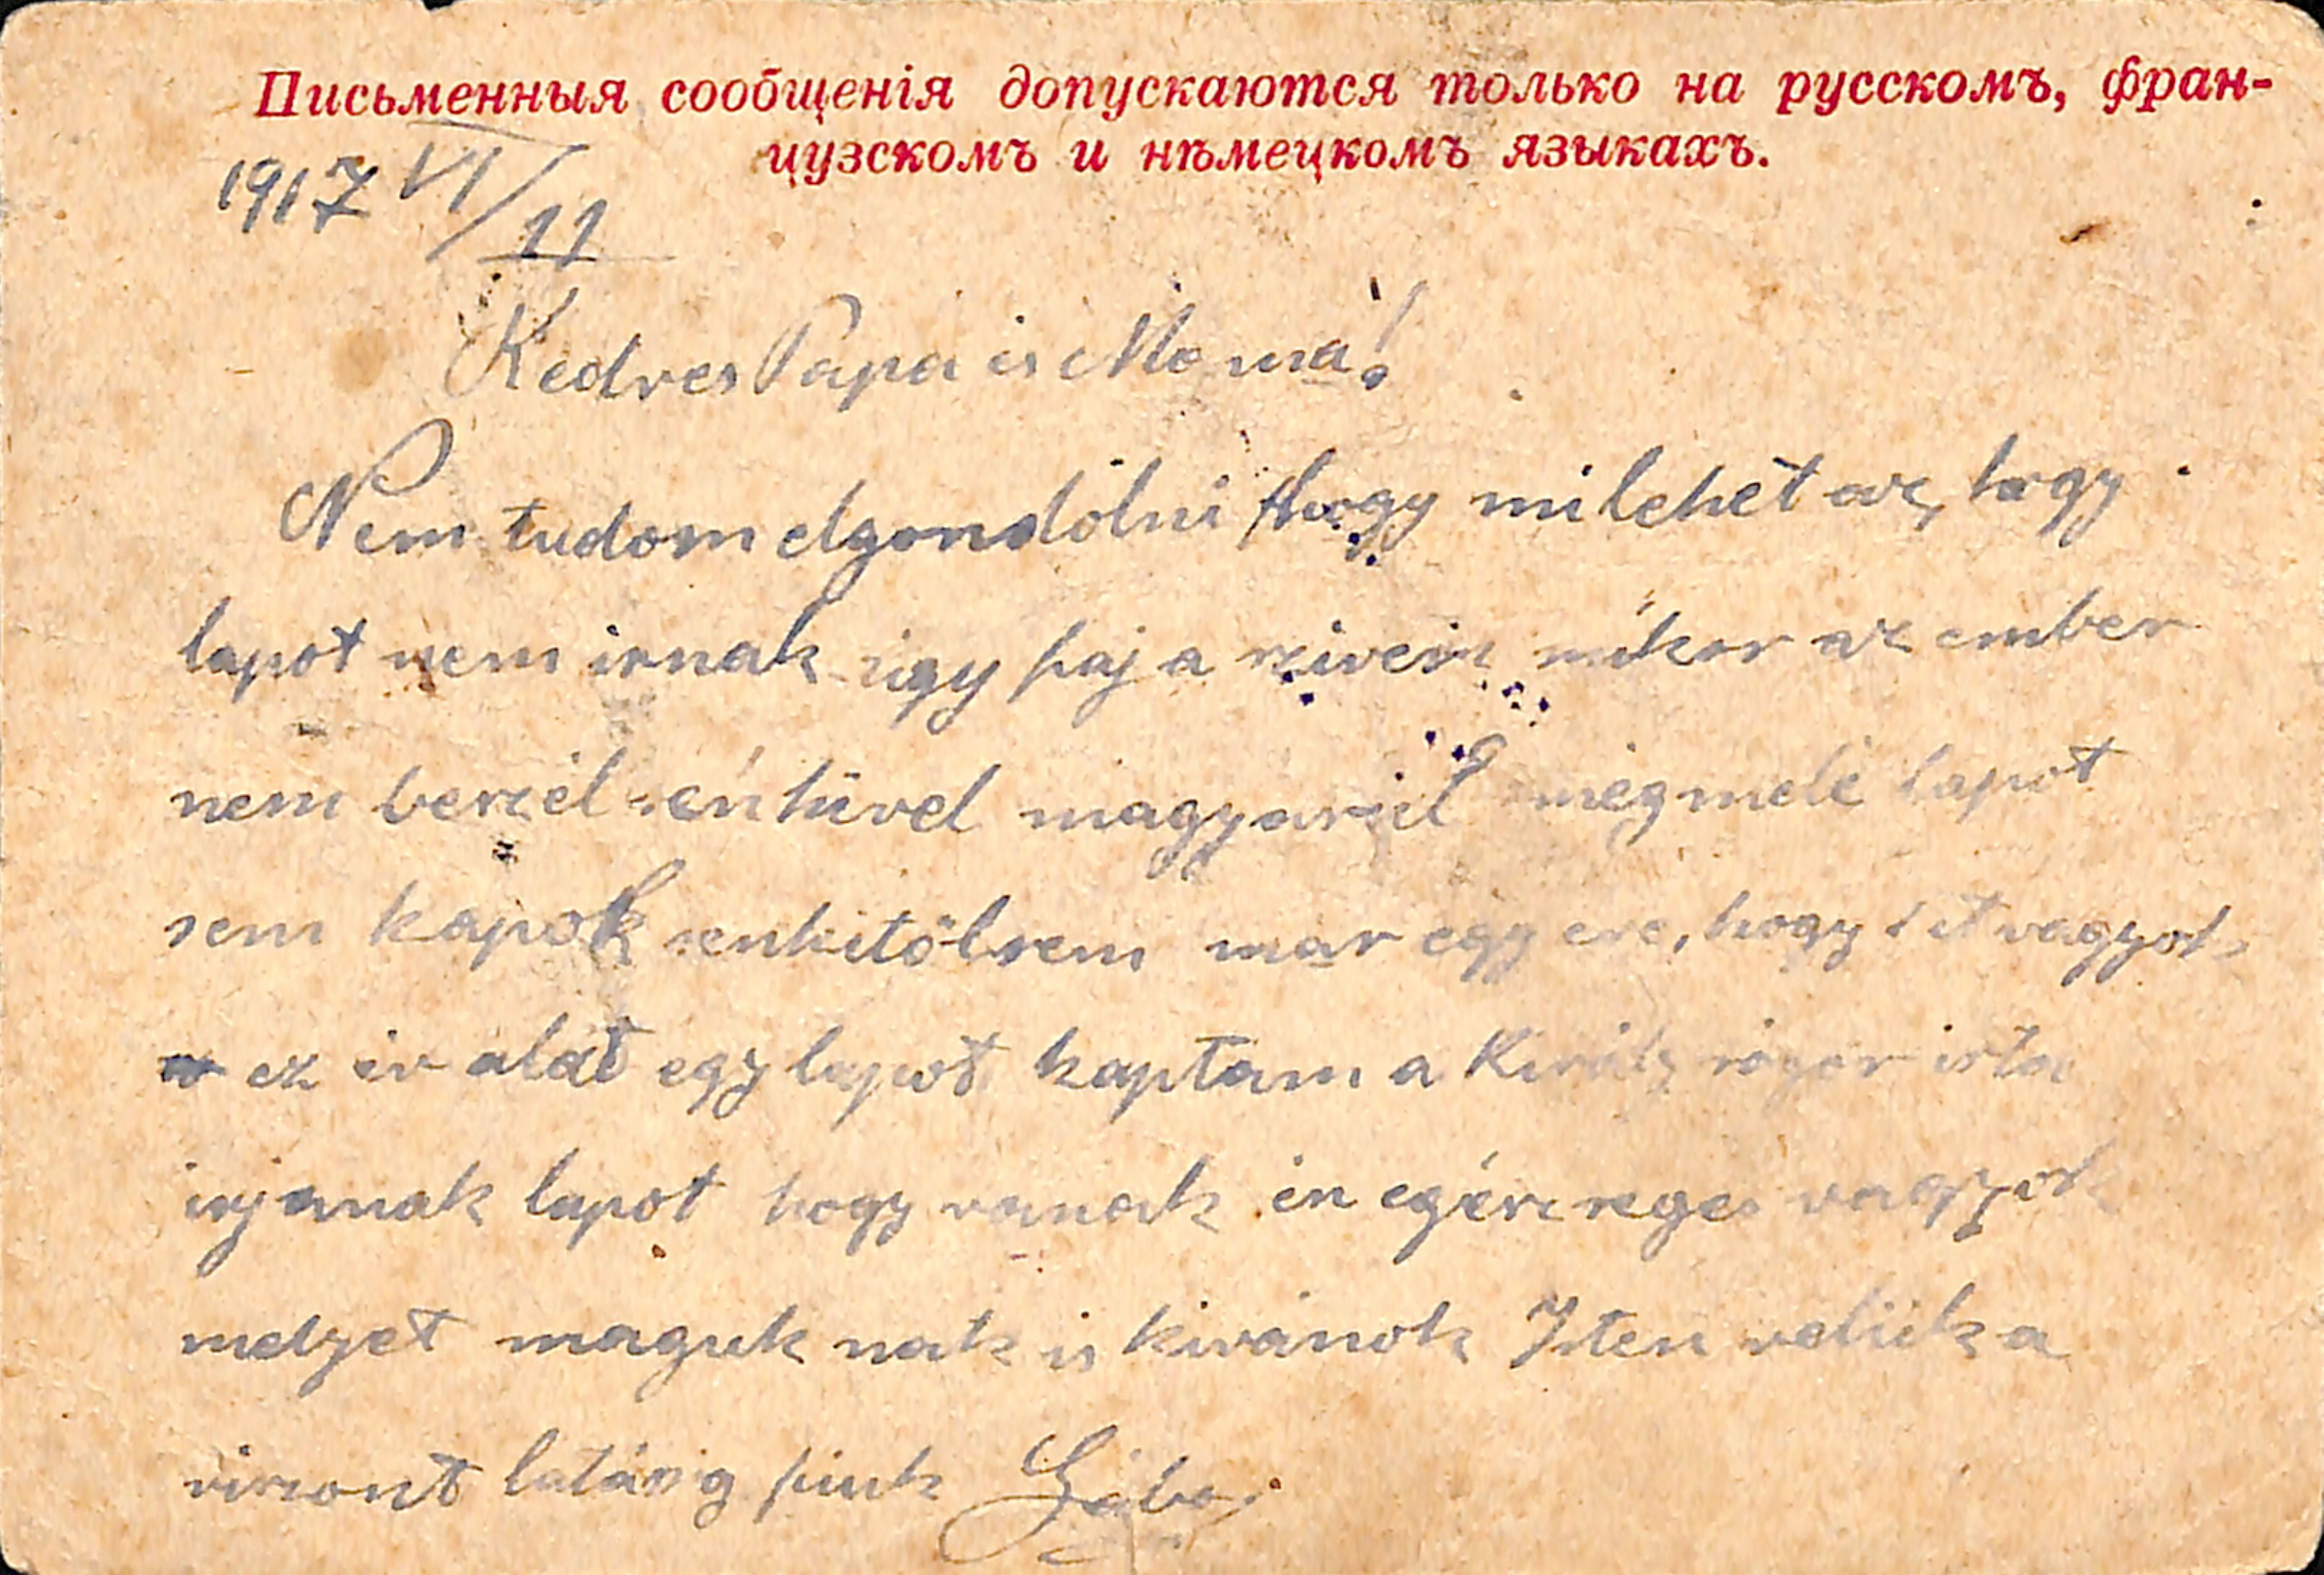 Письменныя сообщенія допускаются только на русскомъ, фран-
цузскомъ и нѣмецкомъ языкахъ.
1917 VI/11
Kedves Papa is Mama!
Nem tudom elgondolni hogy mi lehet az, hogy
lapot nem irnak ugy faj a szivem mikor az ember
nem beszél magyarúl megmelé lapot
sem kapok senkitölsem mar egy eve, hogy it vagyok
ez év alat egy lapot kaptam a Király irta
irjanak lapot hogy vanak én egésséges vagyok
melyet maguk nak is kivánok Isten velük a
viszont latásig fiuk Gába